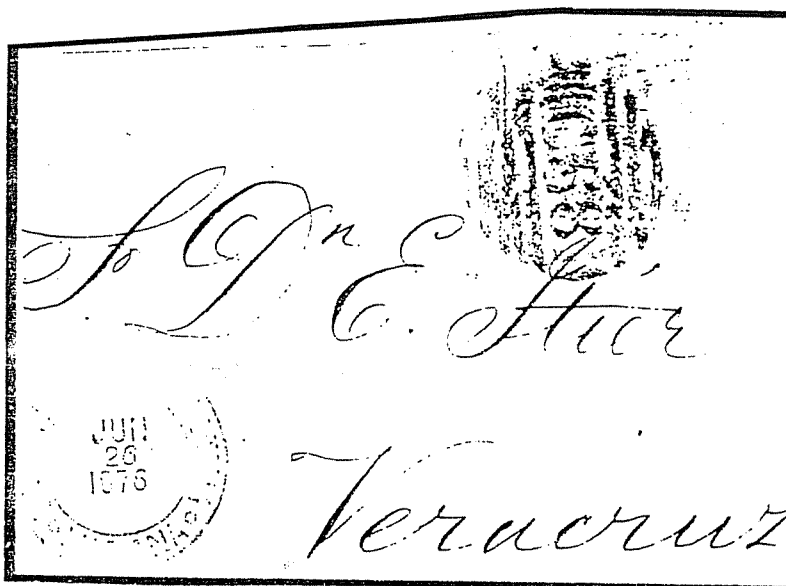 Sr Dn E. Stier
JUN
26
1876
Veracruz